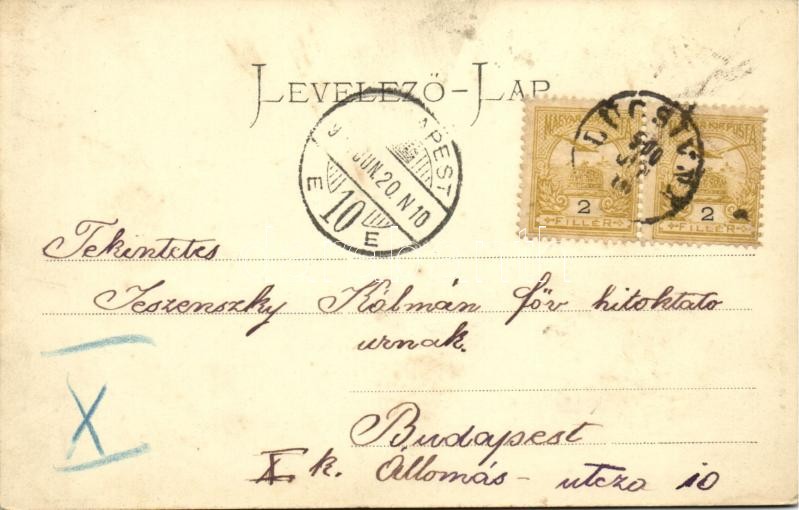 LEVELEZŐ-LAP
MAGYAR KIR. POSTA
2
FILLÉR
2
FILLÉR
900
JUN.20.N10
10
E
E
Tekintetes
Jeszenszky Kálmán főv hitoktato
urnak.
X
Budapest
X k. Állomás - utcza 10